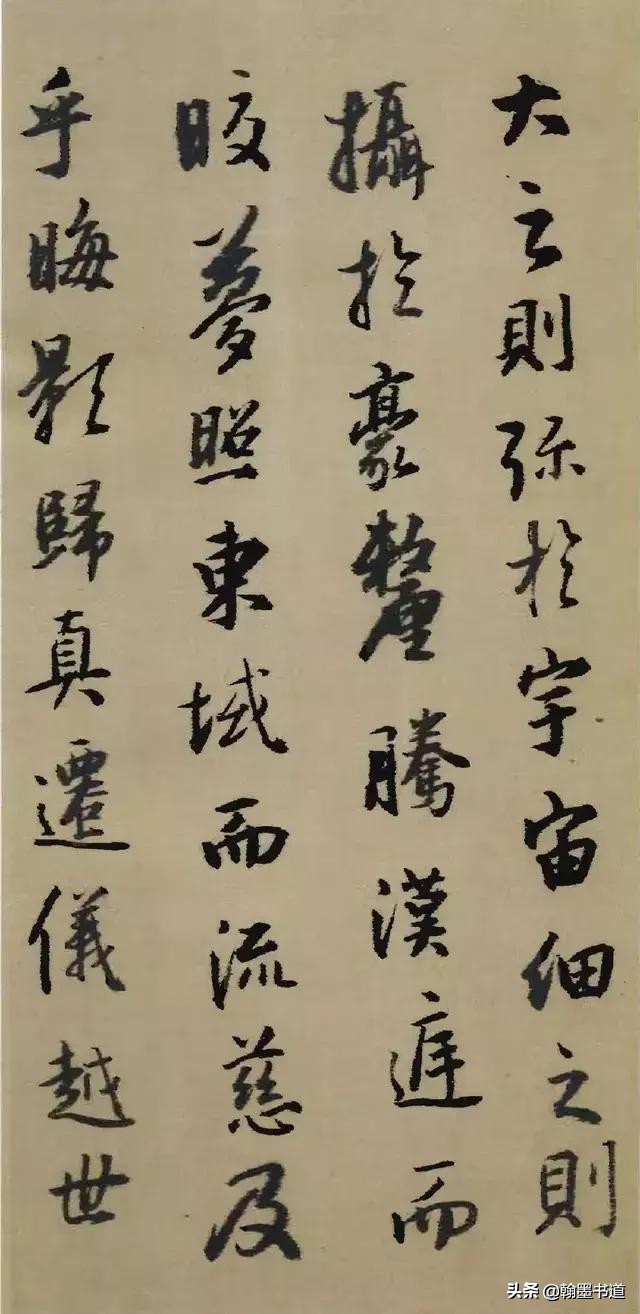 大之則弥於宇宙細之則
攝於豪釐騰漢庭而
晈夢照東域而流慈及
乎晦影歸真遷儀越世
头条 @翰墨书道